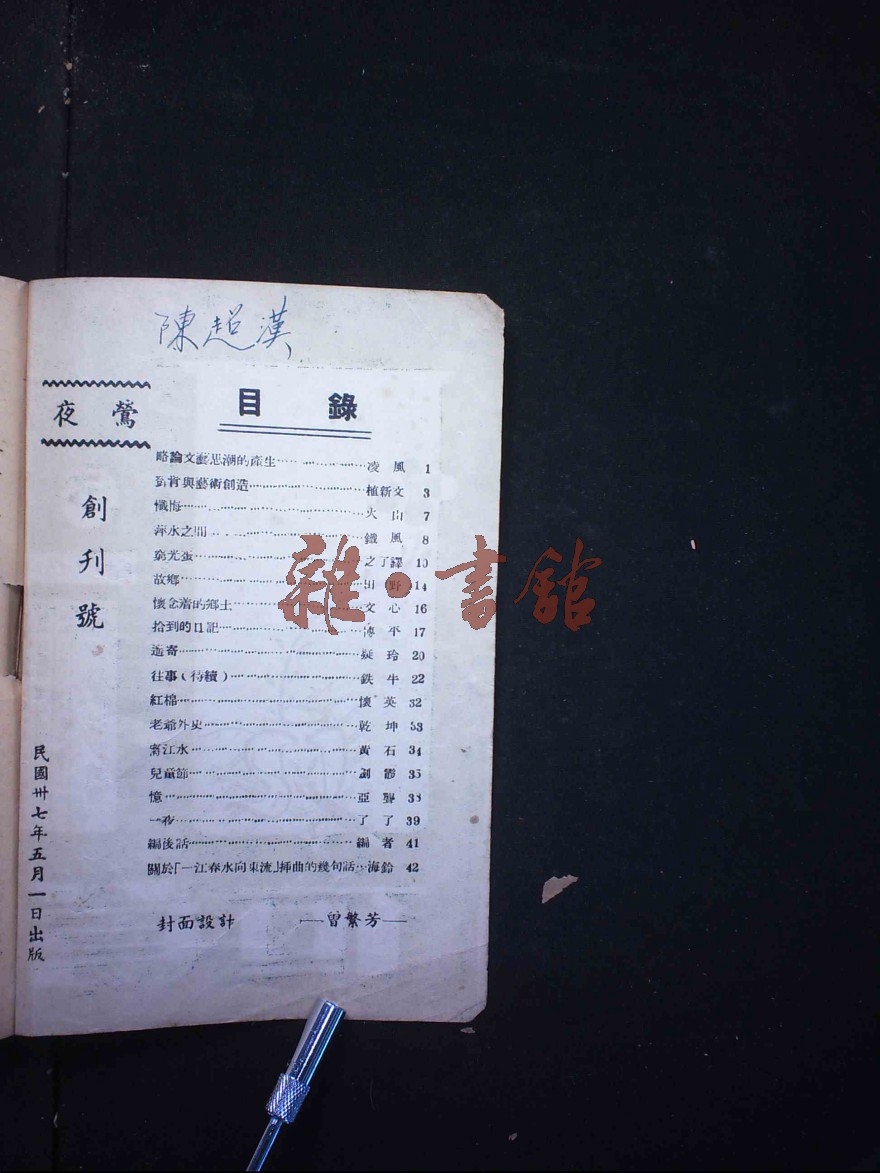 陳超漢
夜鶯
創刊號
民國卅七年五月一日出版
目錄
略論文藝思潮的產生 凌風 1
與藝術創造 植新文 3
懺悔 火山 7
萍水之間 鐵風 8
窮光蛋 之了譯 10
故鄉 田野 14
懷念着的鄉土 文心 16
拾到的日記 傅平 17
遙寄 疑玲 20
往事(待續) 鉄牛 22
紅棉 懷英 32
老爺外史 乾坤 33
江水 黃石 34
兒童節 劉霞 35
憶 亞聾 38
一夜 了了 39
編後話 編者 41
關於「一江春水向東流」揷曲的幾句話 海鈴 42
封面設計 —曾繁芳—
雜·書館